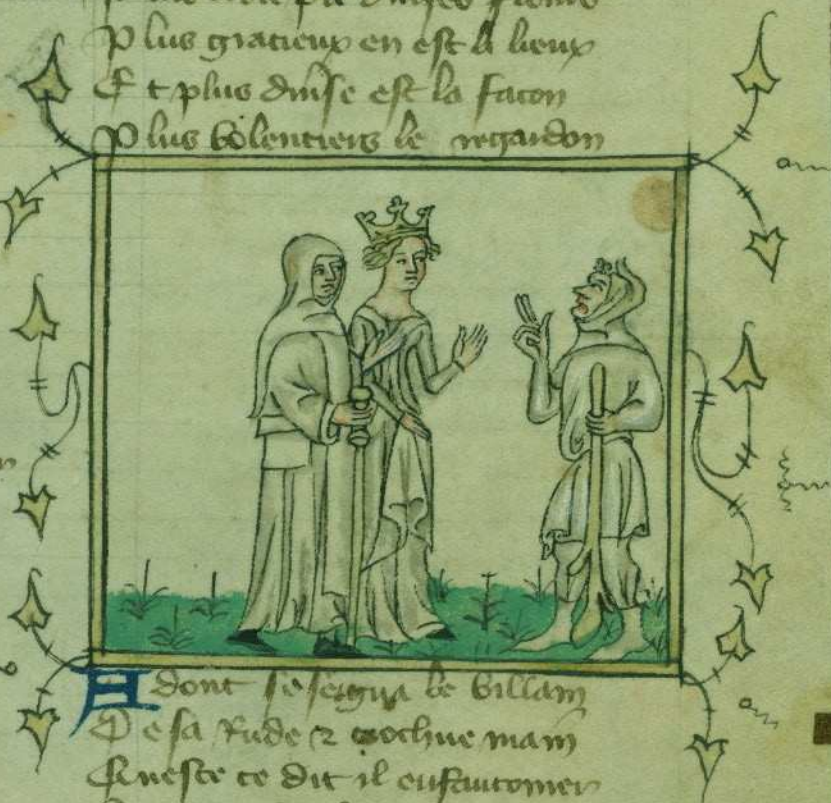 Plus gracieux en est li lieux
Et plus divise est la facon
Plus volentiers le regardon
Adont se seigna le villain
De sa Rude & crochue main
Quesce ce dit il enfantomez